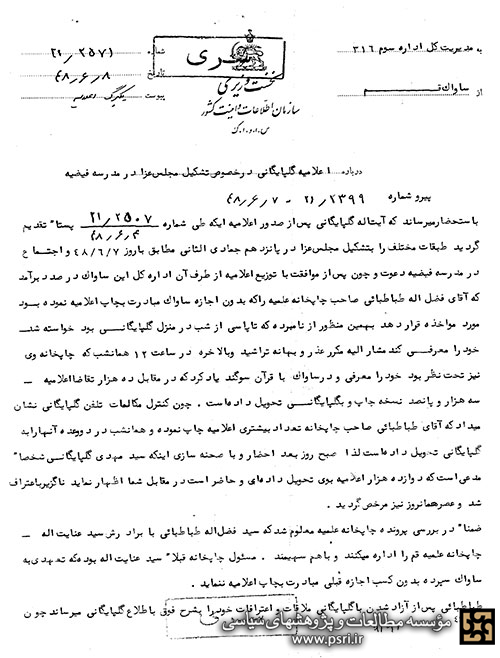 به مدیریت کل اداره سوم ۳۱۶
از ساواک قم
سری
نخست وزیری
سازمان اطلاعات و امنیت کشور
س.ا.و.ا.ک
شماره ۲۱/۲۵۷۱
تاریخ ۴۸/۶/۸
پیوست یکبرگ اعلامیه
درباره اعلامیه گلپایگانی درخصوص تشکیل مجلس عزا در مدرسه فیضیه
پیرو شماره ۲۱/۲۳۹۹ - ۴۸/۶/۷
باستحضار میرساند که آیت اله گلپایگانی پس از صدور اعلامیه ایکه طی شماره ۲۱/۲۵۰۷ ۴۸/۶/۴ پستا" تقدیم
گردید طبقات مختلف را بتشکیل مجلس عزا در پانزدهم جمادی الثانی مطابق باروز ۴۸/۶/۷ و اجتماع
در مدرسه فیضیه دعوت و چون پس از موافقت با توزیع اعلامیه از طرف آن اداره کل این ساواک در صدد برآمد
که آقای فضل اله طباطبائی صاحب چاپخانه علمیه راکه بدون اجازه ساواک مبادرت بچاپ اعلامیه نموده بود
مورد مواخذه قرار دهد بهمین منظور از نامبرده که تاپاسی از شب در منزل گلپایگانی بود خواسته شد
خود را معرفی کند مشار الیه مکرر عذر و بهانه تراشید وبالاخره در ساعت ۱۲ همانشب که چاپخانه وی
نیز تحت نظر بود خود را معرفی و در ساواک با قرآن سوگند یاد کرد که در مقابل ده هزار تقاضا اعلامیه -
سه هزار و پانصد نسخه چاپ و بگلپایگانی تحویل داده است. چون کنترل مکالمات تلفن گلپایگانی نشان
میداد که آقای طباطبائی صاحب چاپخانه تعداد بیشتری اعلامیه چاپ نموده و همانشب در دو وعده آنها را به
گلپایگانی تحویل داده است لذا صبح روز بعد احضار و با صحنه سازی اینکه سید مهدی گلپایگانی شخصا"
مدعی است که دوازده هزار اعلامیه بوی تحویل داده ای و حاضر است در مقابل شما اظهار نماید ناگزیر باعتراف
شد و عصر همانروز نیز مرخص گردید.
ضمنا" در بررسی پرونده چاپخانه علمیه معلوم شد که سید فضل اله طباطبائی با برادرش سید عنایت اله -
چاپخانه علمیه قم را اداره میکنند و باهم سهیمند. مسئول چاپخانه قبلا" سید عنایت اله بوده که تعهدی به
ساواک سپرده بدون کسب اجازه قبلی مبادرت بچاپ اعلامیه ننماید.
طباطبائی پس از آزاد شدن با گلپایگانی ملاقات و اعترافات خود را بشرح فوق باطلاع گلپایگانی میرساند چون
مؤسسه مطالعات و پژوهشهای سیاسی
www.psri.ir